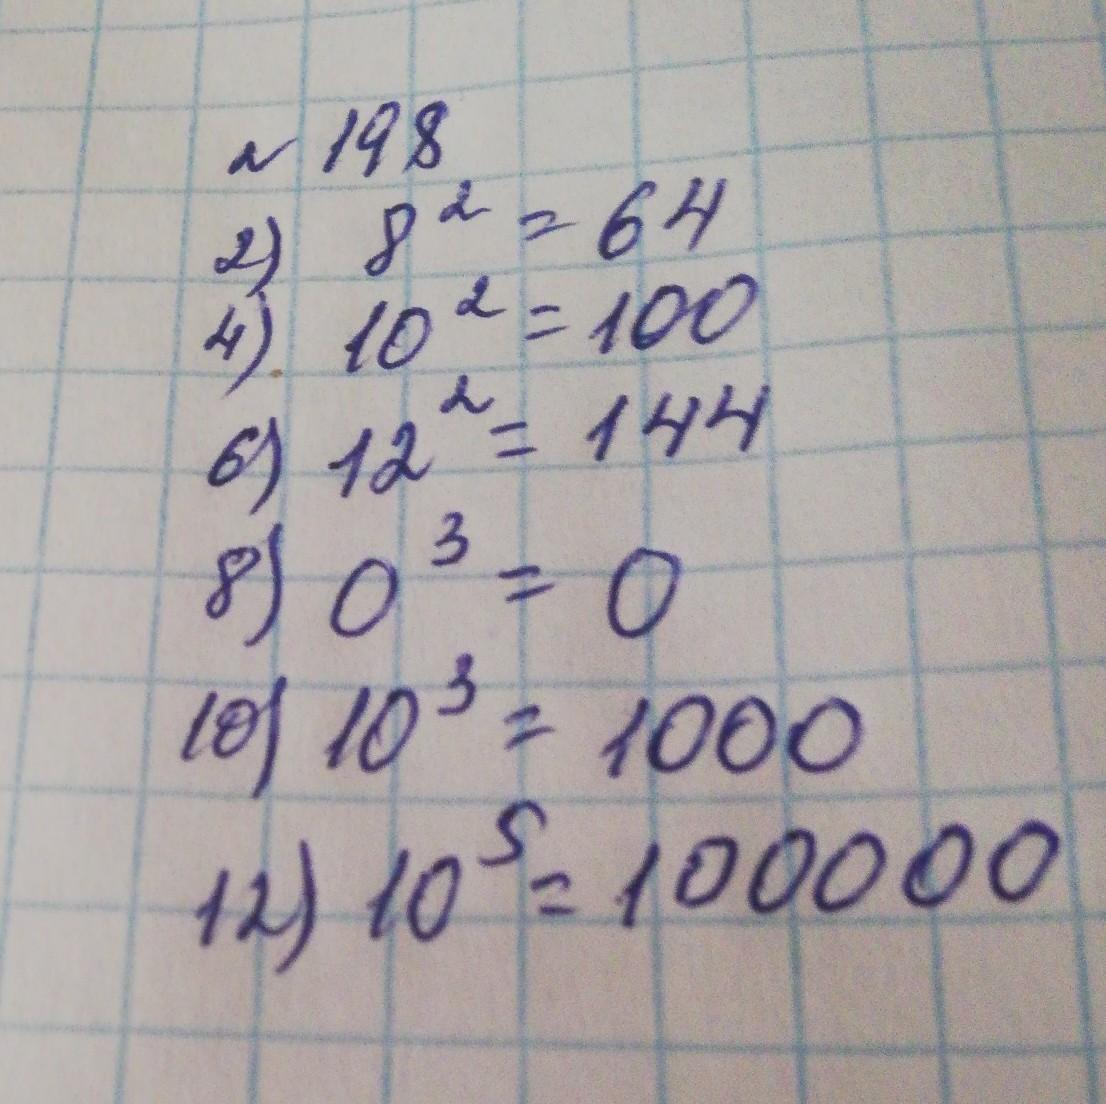 № 198
2) 8² = 64
4) 10² = 100
6) 12² = 144
8) 0³ = 0
10) 10³ = 1000
12) 10⁵ = 100000